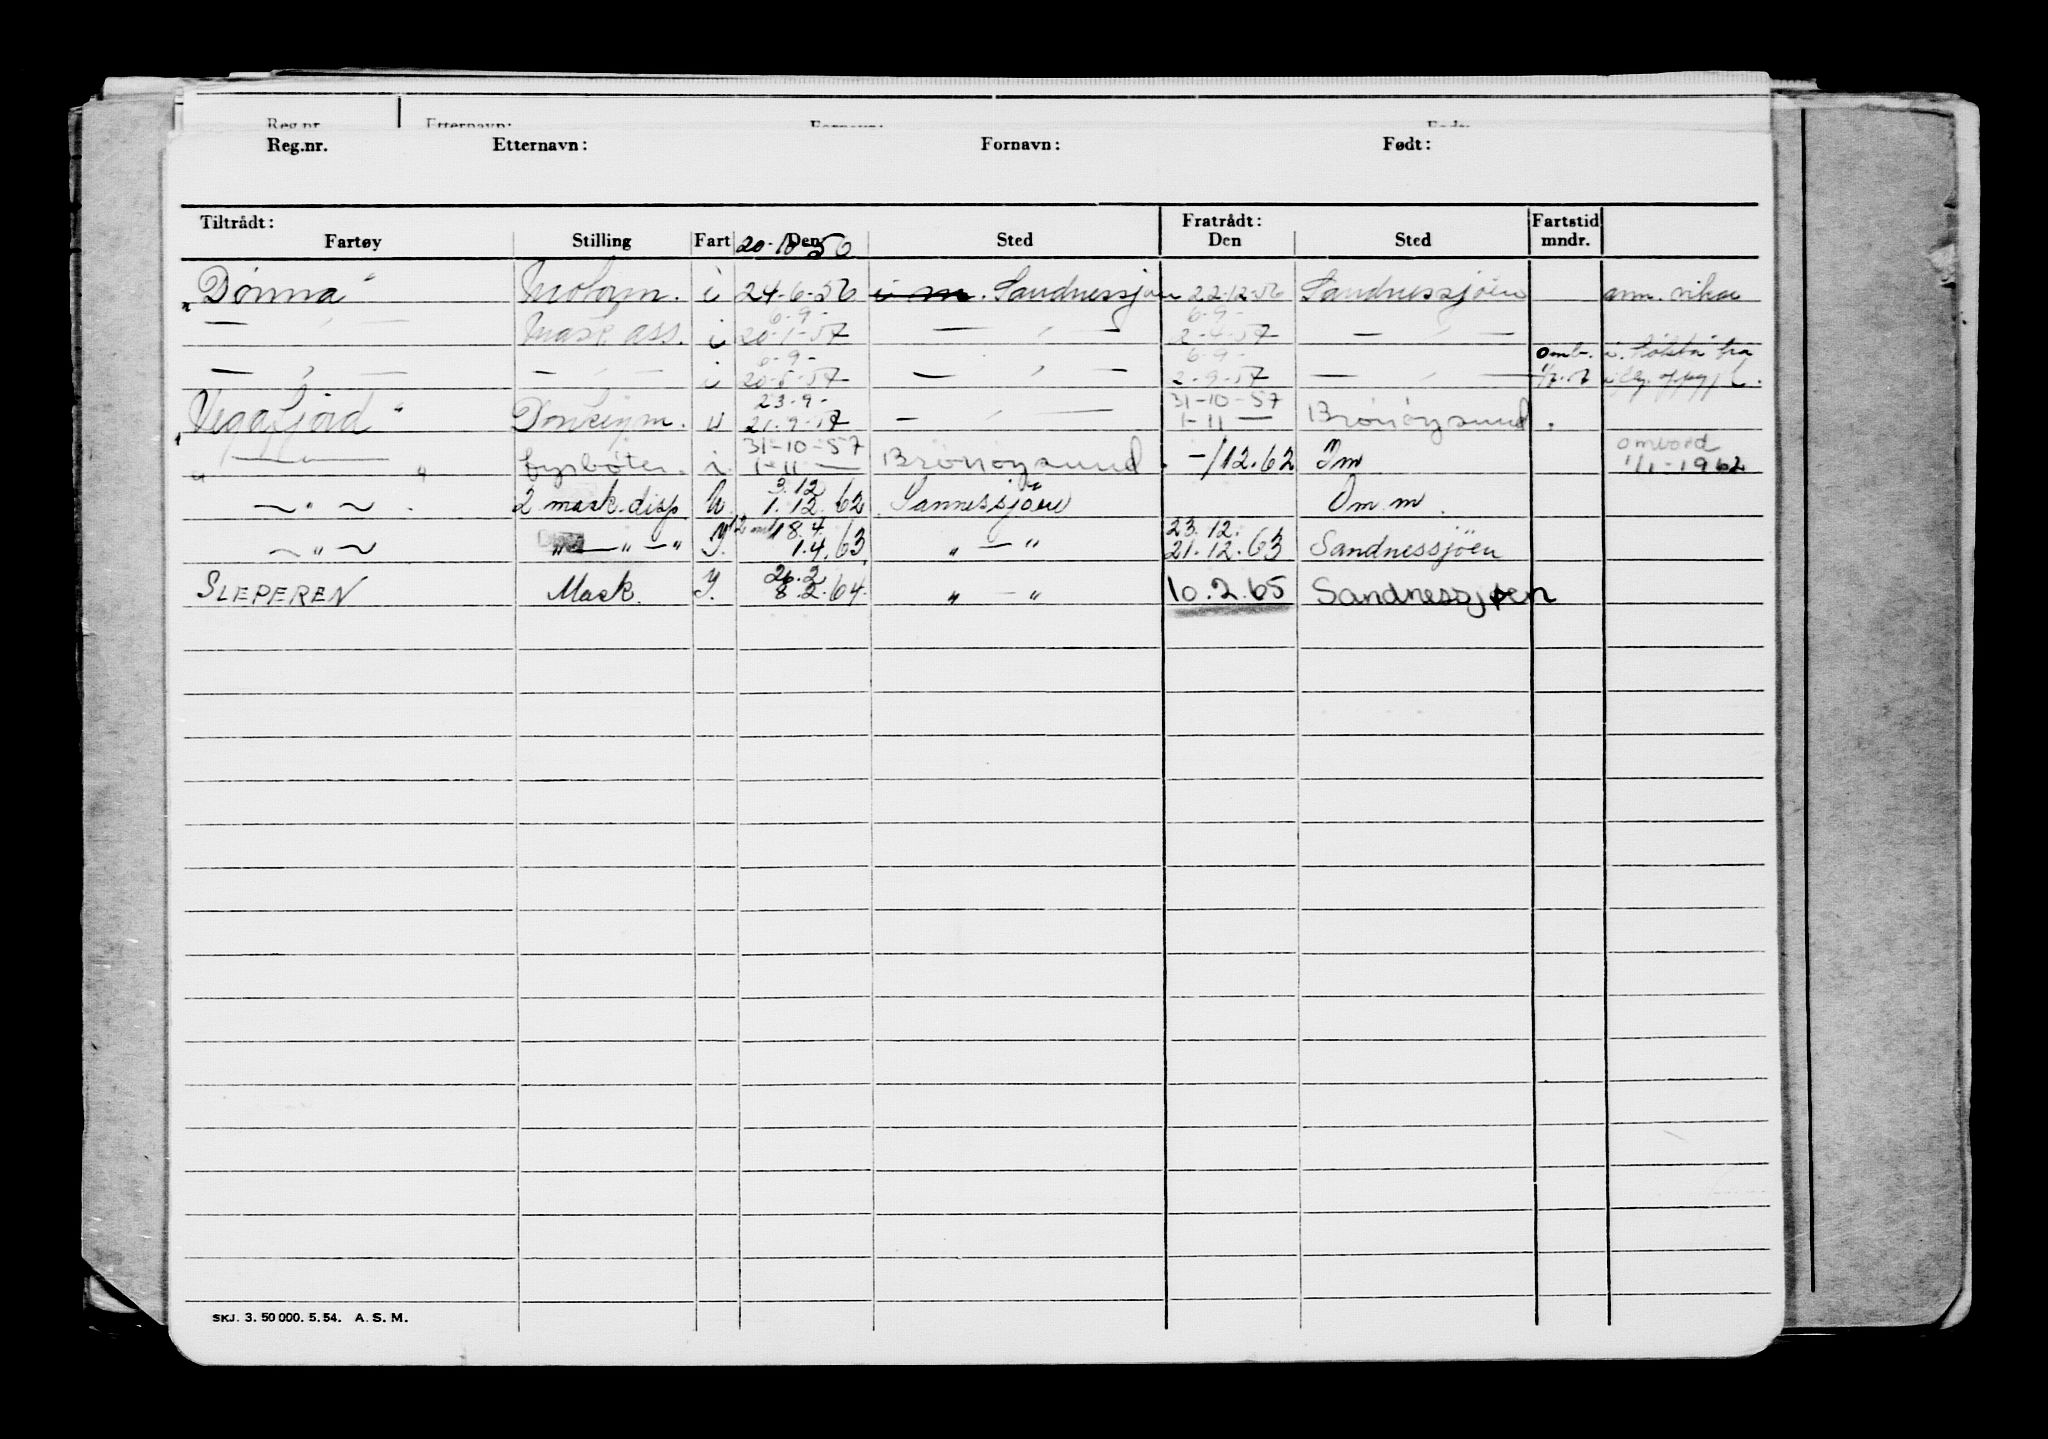 Reg.nr. Etternavn: Fornavn: Født:
Reg.nr. Etternavn: Fornavn: Født:
Tiltrådt: Fratrådt: Fartstid
Fartøy Stilling Fart Den Sted Den Sted mndr.
20-10-56
"Dønna" Motorm. i 24-6-56 i m. Sandnessjøen 22-12-56 Sandnessjøen ann. vikar
6-9- 6-9-
— , — Mask ass. i 20-1-57 — , — 2-4-57 — , —
6-9- 6-9- omb. i fra
— , — — , — i 20-5-57 — , — 2-9-57 — , —
23-9- 31-10-57
"Vegafjord" Donkeym. u 21-9-57 — , — 1-11 — Brönöysund.
31-10-57 ombord
" — " — " fyrböter. i. 1-11 — Brönöysund. -/12.62 Im 1/1-1962
3.12
~ " ~ 2 mask.disp U. 1.12.62 Sannessjöen Om m.
18.4 23.12.
~ " ~ " — " — " Y. 1.4.63 " — " 21.12.63 Sandnessjöen
26.2
SLEPEREN Mask. Y. 8.2.64. " — " 10.2.65 Sandnessjøen
SKJ. 3. 50 000. 5. 54. A. S. M.